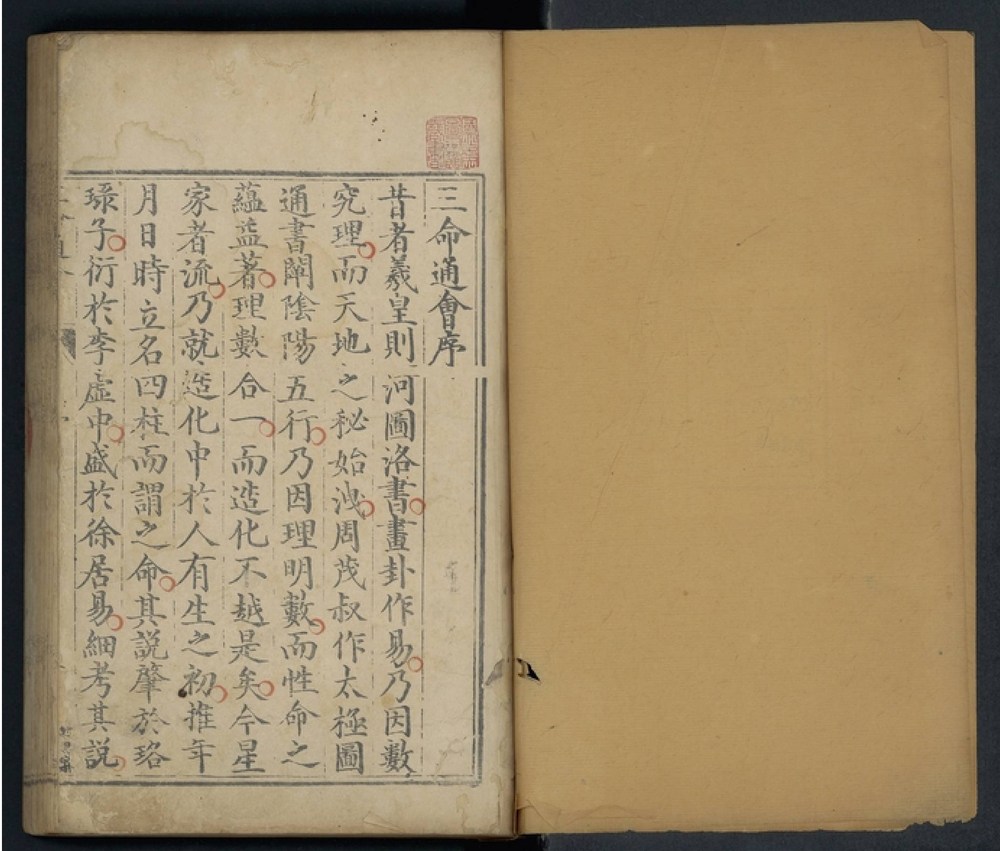 三命通會序
昔者羲皇則河圖洛書畫卦作易乃因數
究理而天地之秘始洩周茂叔作太極圖
通書闡陰陽五行乃因理明數而性命之
蘊益著理數合一而造化不越是矣今星
家者流乃就造化中於人有生之初推年
月日時立名四柱而謂之命其說肇於珞
琭子衍於李虛中盛於徐居易細考其說